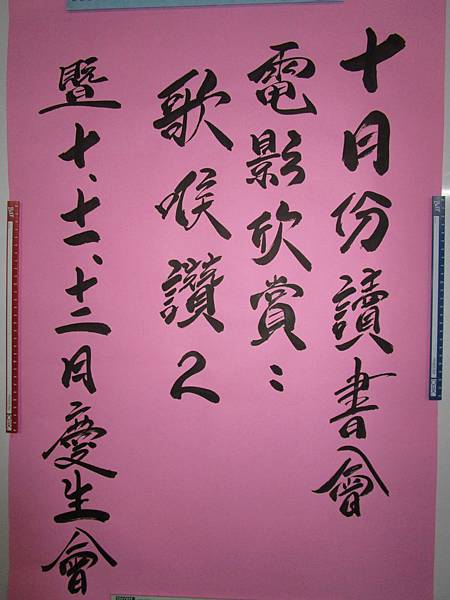 十月份讀書會
電影欣賞：
歌喉讚2
暨十、十一、十二月慶生會